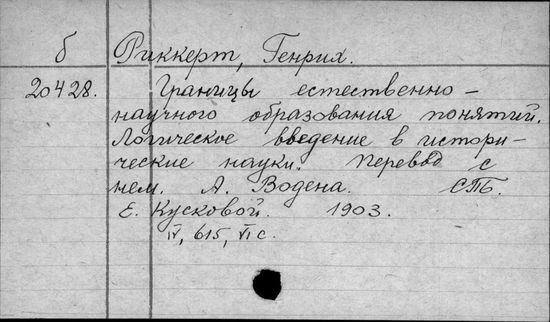 б Риккерт, Генрих.
20428. Границы естественно-
научного образования понятий.
Логическое введение в истори-
ческие науки. Перевод с
нем. А. Водена. СПБ.
Е. Кусковой. 1903.
IV, 615, VI с.